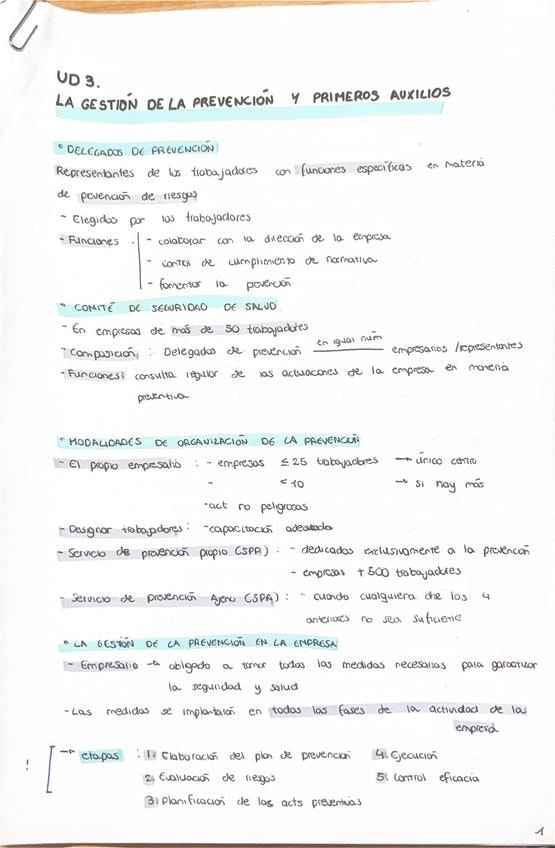 UD 3.
LA GESTIÓN DE LA PREVENCIÓN Y PRIMEROS AUXILIOS
° DELEGADOS DE PREVENCIÓN
Representantes de los trabajadores con funciones específicas en materia
de pevención de riesgos
- Elegidos por los trabajadores
- Funciones . - colaborar con la dirección de la empresa
- control de cumplimiento de normativa
- fomentar la prevención
° COMITÉ DE SEGURIDAD DE SALUD
- En empresas de más de 50 trabajadores
- Composición : Delegados de prevención en igual núm empresarios /representantes
- Funciones: consulta regular de las actuaciones de la empresa en materia
preventiva
° MODALIDADES DE ORGANIZACIÓN DE LA PREVENCIÓN
- El propio empresario : - empresas ≤ 25 trabajadores → único centro
- ≤ 10 → si hay más
- act no peligrosas
- Designar trabajadores : - capacitación adecuada
- Servicio de prevención propio (SPP) : - dedicados exclusivamente a la prevención
- empresas + 500 trabajadores
- Servicio de prevención Ajeno (SPA) : - cuando cualquiera de los 4
anteriores no sea suficiente
° LA GESTIÓN DE LA PREVENCIÓN EN LA EMPRESA
- Empresario → obligado a tomar todas las medidas necesarias para garantizar
la seguridad y salud
- Las medidas se implantarán en todas las fases de la actividad de la
empresa
! → etapas : 1. Elaboración del plan de prevención 4. Ejecución
2. Evaluación de riesgos 5. Control eficacia
3. Planificación de las acts preventivas
1